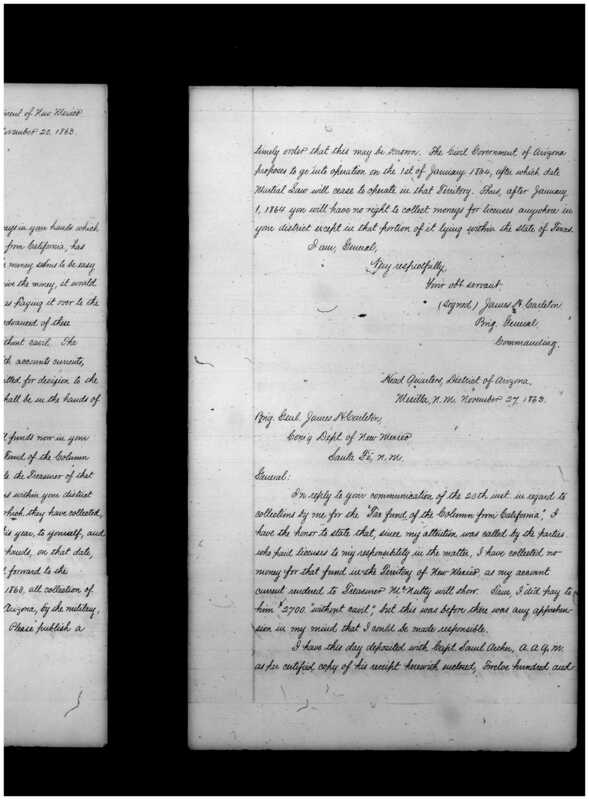 ment of New Mexico
November 20, 1863.
neys in your hands which
from California, has
money seems to be easy
ive the money, it would
as paying it over to the
endorsement of these
thout cavil. The
th accounts currents,
itted for decision to the
hall be in the hands of
funds now in your
Fund of the Column
to the Treasurer of that
ns within your district
which they have collected,
his year, to yourself, and
hands, on that date,
forward to the
1863, all collection of
Arizona, by the military,
Please publish a
timely order that this may be known. The Civil Government of Arizona
proposes to go into operation on the 1st of January 1864, after which date
Martial Law will cease to operate in that Territory. Thus, after January
1, 1864 you will have no right to collect moneys for licenses anywhere in
your district except in that portion of it lying within the state of Texas.
I am, General,
Very respectfully,
Your obt servant
(Signed) James H. Carleton,
Brig. General,
Commanding.
Head Quarters, District of Arizona.
Mesilla, N.M. November 27, 1863.
Brig. Genl. James H Carleton,
Com'g Dept. of New Mexico
Santa Fé, N.M.
General:
In reply to your communication of the 20th inst. in regard to
collections by me for the "Tax fund, of the Column from California", I
have the honor to state that, since my attention was called by the parties
who paid licenses to my responsibility in the matter, I have collected no
money for that fund in the Territory of New Mexico, as my account
current rendered to Treasurer McNulty will show. True, I did pay to
him $2700. "without cavil", but this was before there was any apprehen-
sion in my mind that I could be made responsible.
I have this day deposited with Capt. Saml Archer, A. A. Q. M.
as per certified copy of his receipt herewith enclosed, Twelve hundred and